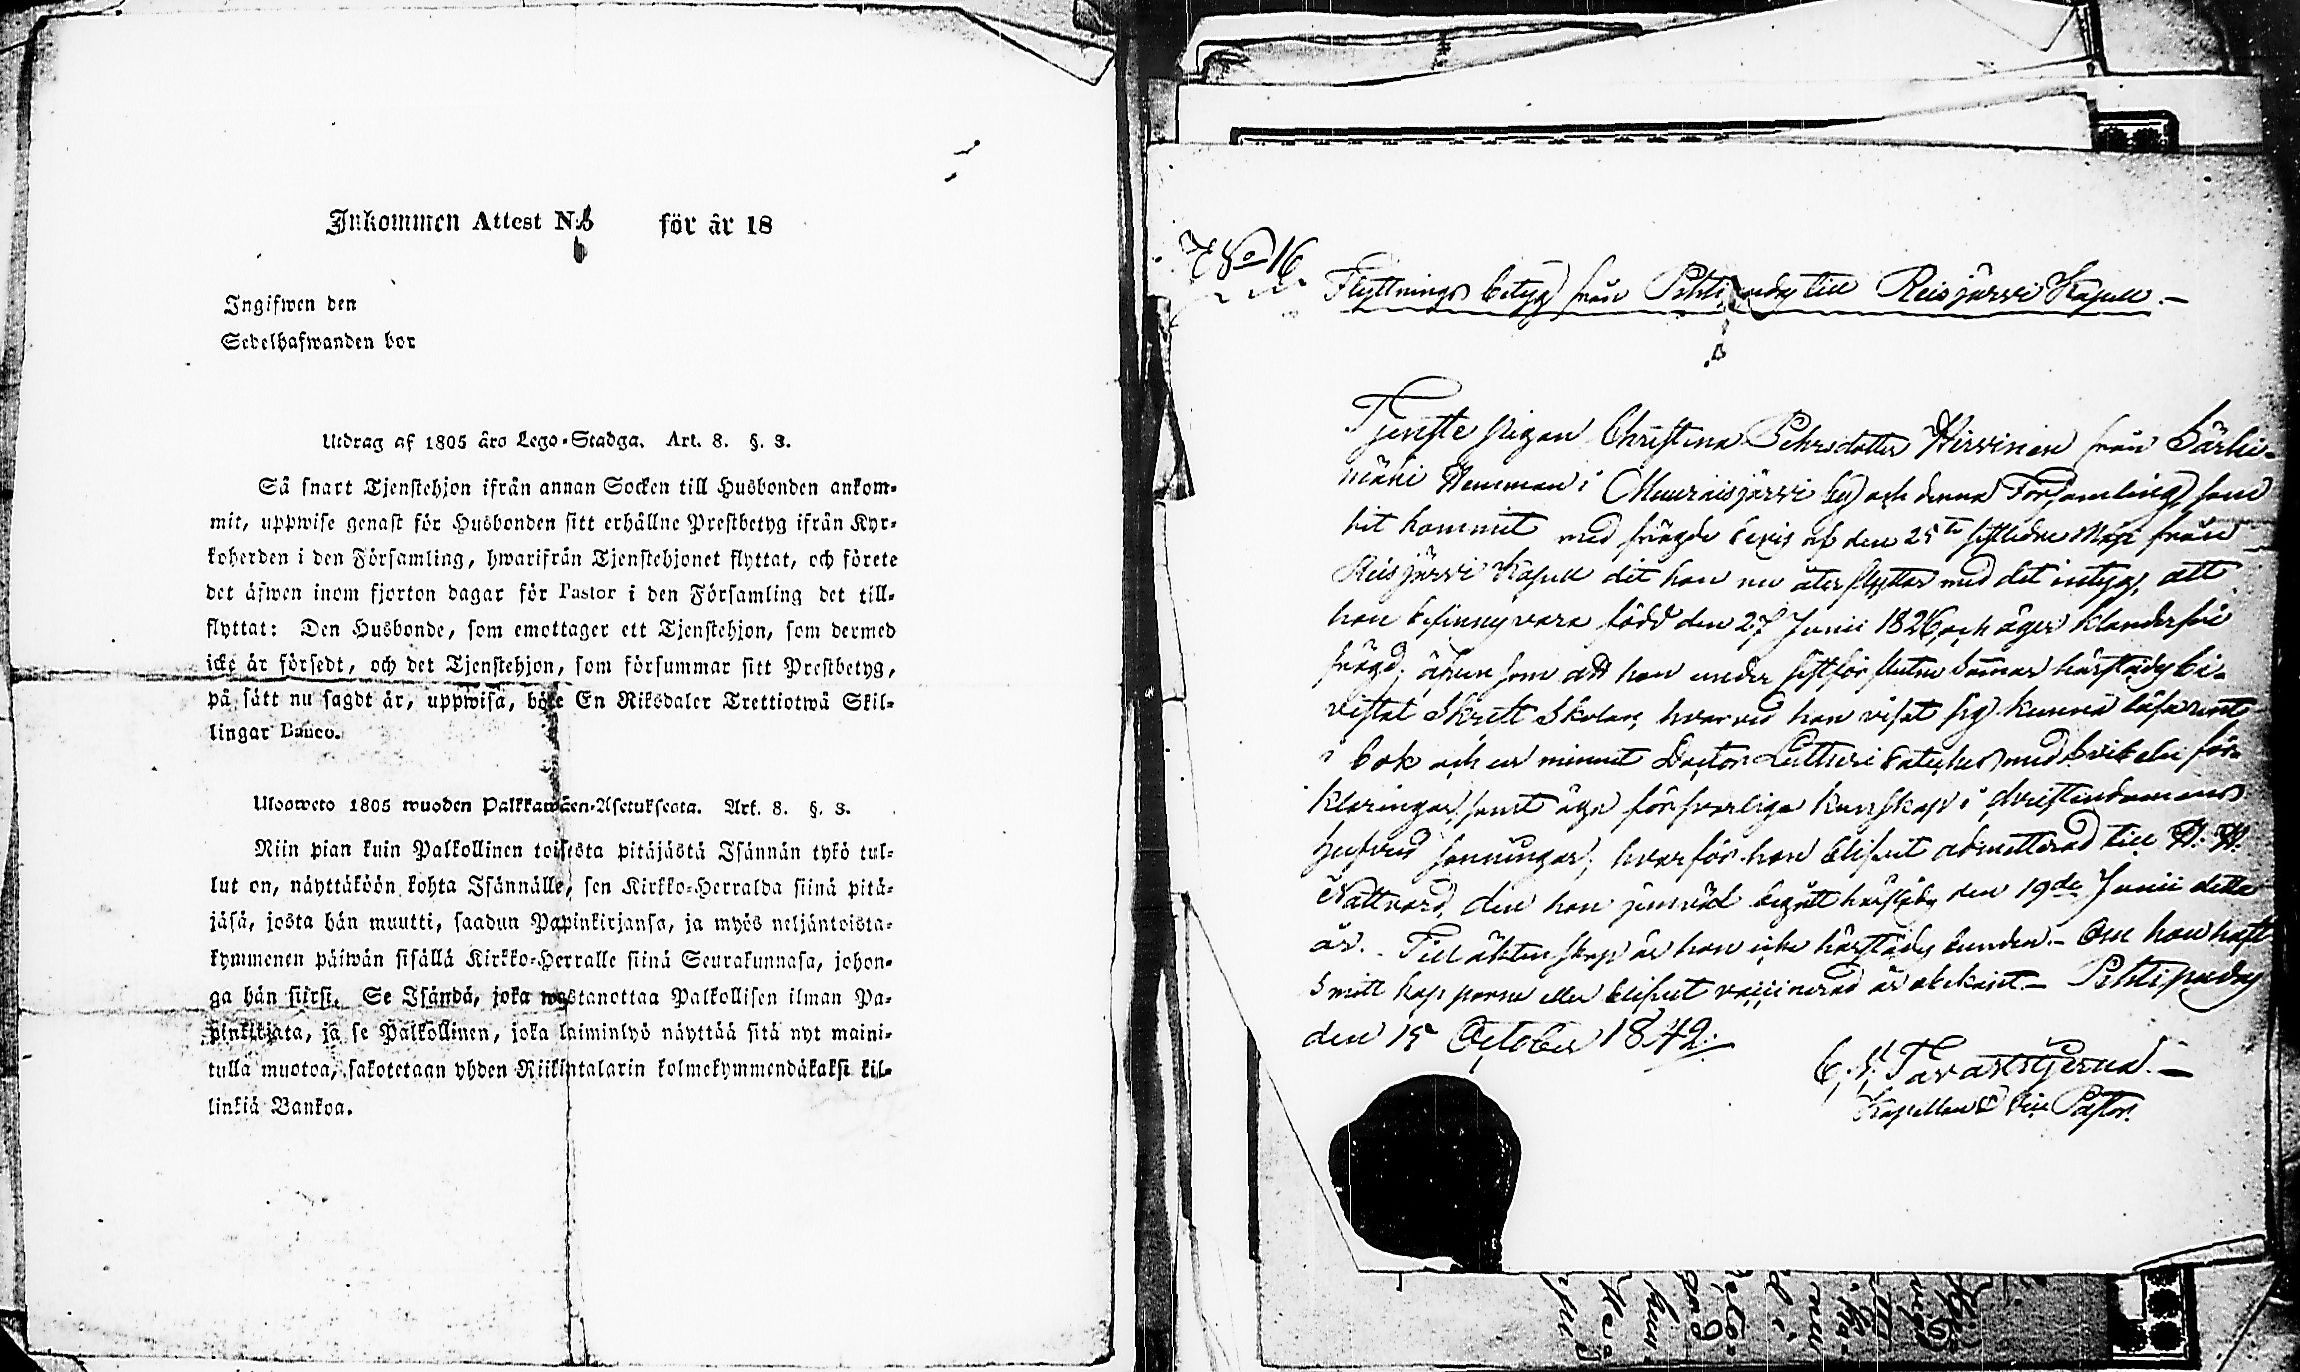 Inkommen Attest N:o för år 18
Ingifwen den
Sedelhafwanden bor
Utdrag af 1805 års Lego-Stadga. Art. 8. §. 3.
Så snart Tjenstehjon ifrån annan Socken till Husbonden ankom-
mit, uppwise genast för Husbonden sitt erhållne Prestbetyg ifrån Kyr-
koherden i den Församling, hwarifrån Tjenstehjonet flyttat, och förete
det äfwen inom fjorton dagar för Pastor i den Församling det till-
flyttat: Den Husbonde, som emottager ett Tjenstehjon, som dermed
icke är försedt, och det Tjenstehjon, som försummar sitt Prestbetyg,
på sätt nu sagdt är, uppwisa, böte En Riksdaler Trettiotwå Skil-
lingar Banco.
Ulosweto 1805 wuoden Palkkawäen-Asetuksesta. Art. 8. §. 3.
Niin pian kuin Palkollinen toisesta pitäjästä Isännän tykö tul-
lut on, näyttäköön kohta Isännälle, sen Kirkko-Herralda siinä pitä-
jäsä, josta hän muutti, saadun Papinkirjansa, ja myös neljäntoista-
kymmenen päiwän sisällä Kirkko-Herralle siinä Seurakunnasa, johon-
ga hän siirsi. Se Isändä, joka wastanottaa Palkollisen ilman Pa-
pinkirjata, ja se Palkollinen, joka laiminlyö näyttää sitä nyt maini-
tulla muotoa, sakotetaan yhden Riikintalarin kolmekymmendäkaksi kil-
linkiä Bankoa.
No 16
Flyttnings betyg från Pihtipudas till Reisjärvi Kapell.-
Tjenste pigan Christina Pehrsdotter Hirvinen från Särki-
mäki Hemman i Muuraisjärvi by och denna Församling, som
hit kommit med frägde bevis af den 25te sistledne Maji från
Reisjärvi Kapell dit hon nu återflyttar med det intyg, att
hon befinnes vara född den 27 Junii 1826 och äger klanderfri
frägd, äfven som att hon under sistförflutne Sommar härstädes be-
vistat Skrift Skolan, hvarvid hon visat sig kunna läsa rent
i bok och ur minnet Doctor Lutheri Cateches med Svebelii för-
klaringar, samt äga försvarliga kunskap i christendomens
hufvud sanningar; hvarför hon blifvit admitterad till H. H.
Nattvard, den hon jemväl begått härstädes den 19de Junii detta
år. Till äktenskap är hon icke härstädes bunden.- Om hon haft
Smitt kopporna eller blifvit vaccinerad är obekant.- Pihtipudas
den 15 October 1842.
C. F. Tavaststjerna.-
Kapellan & Vice Pastor.